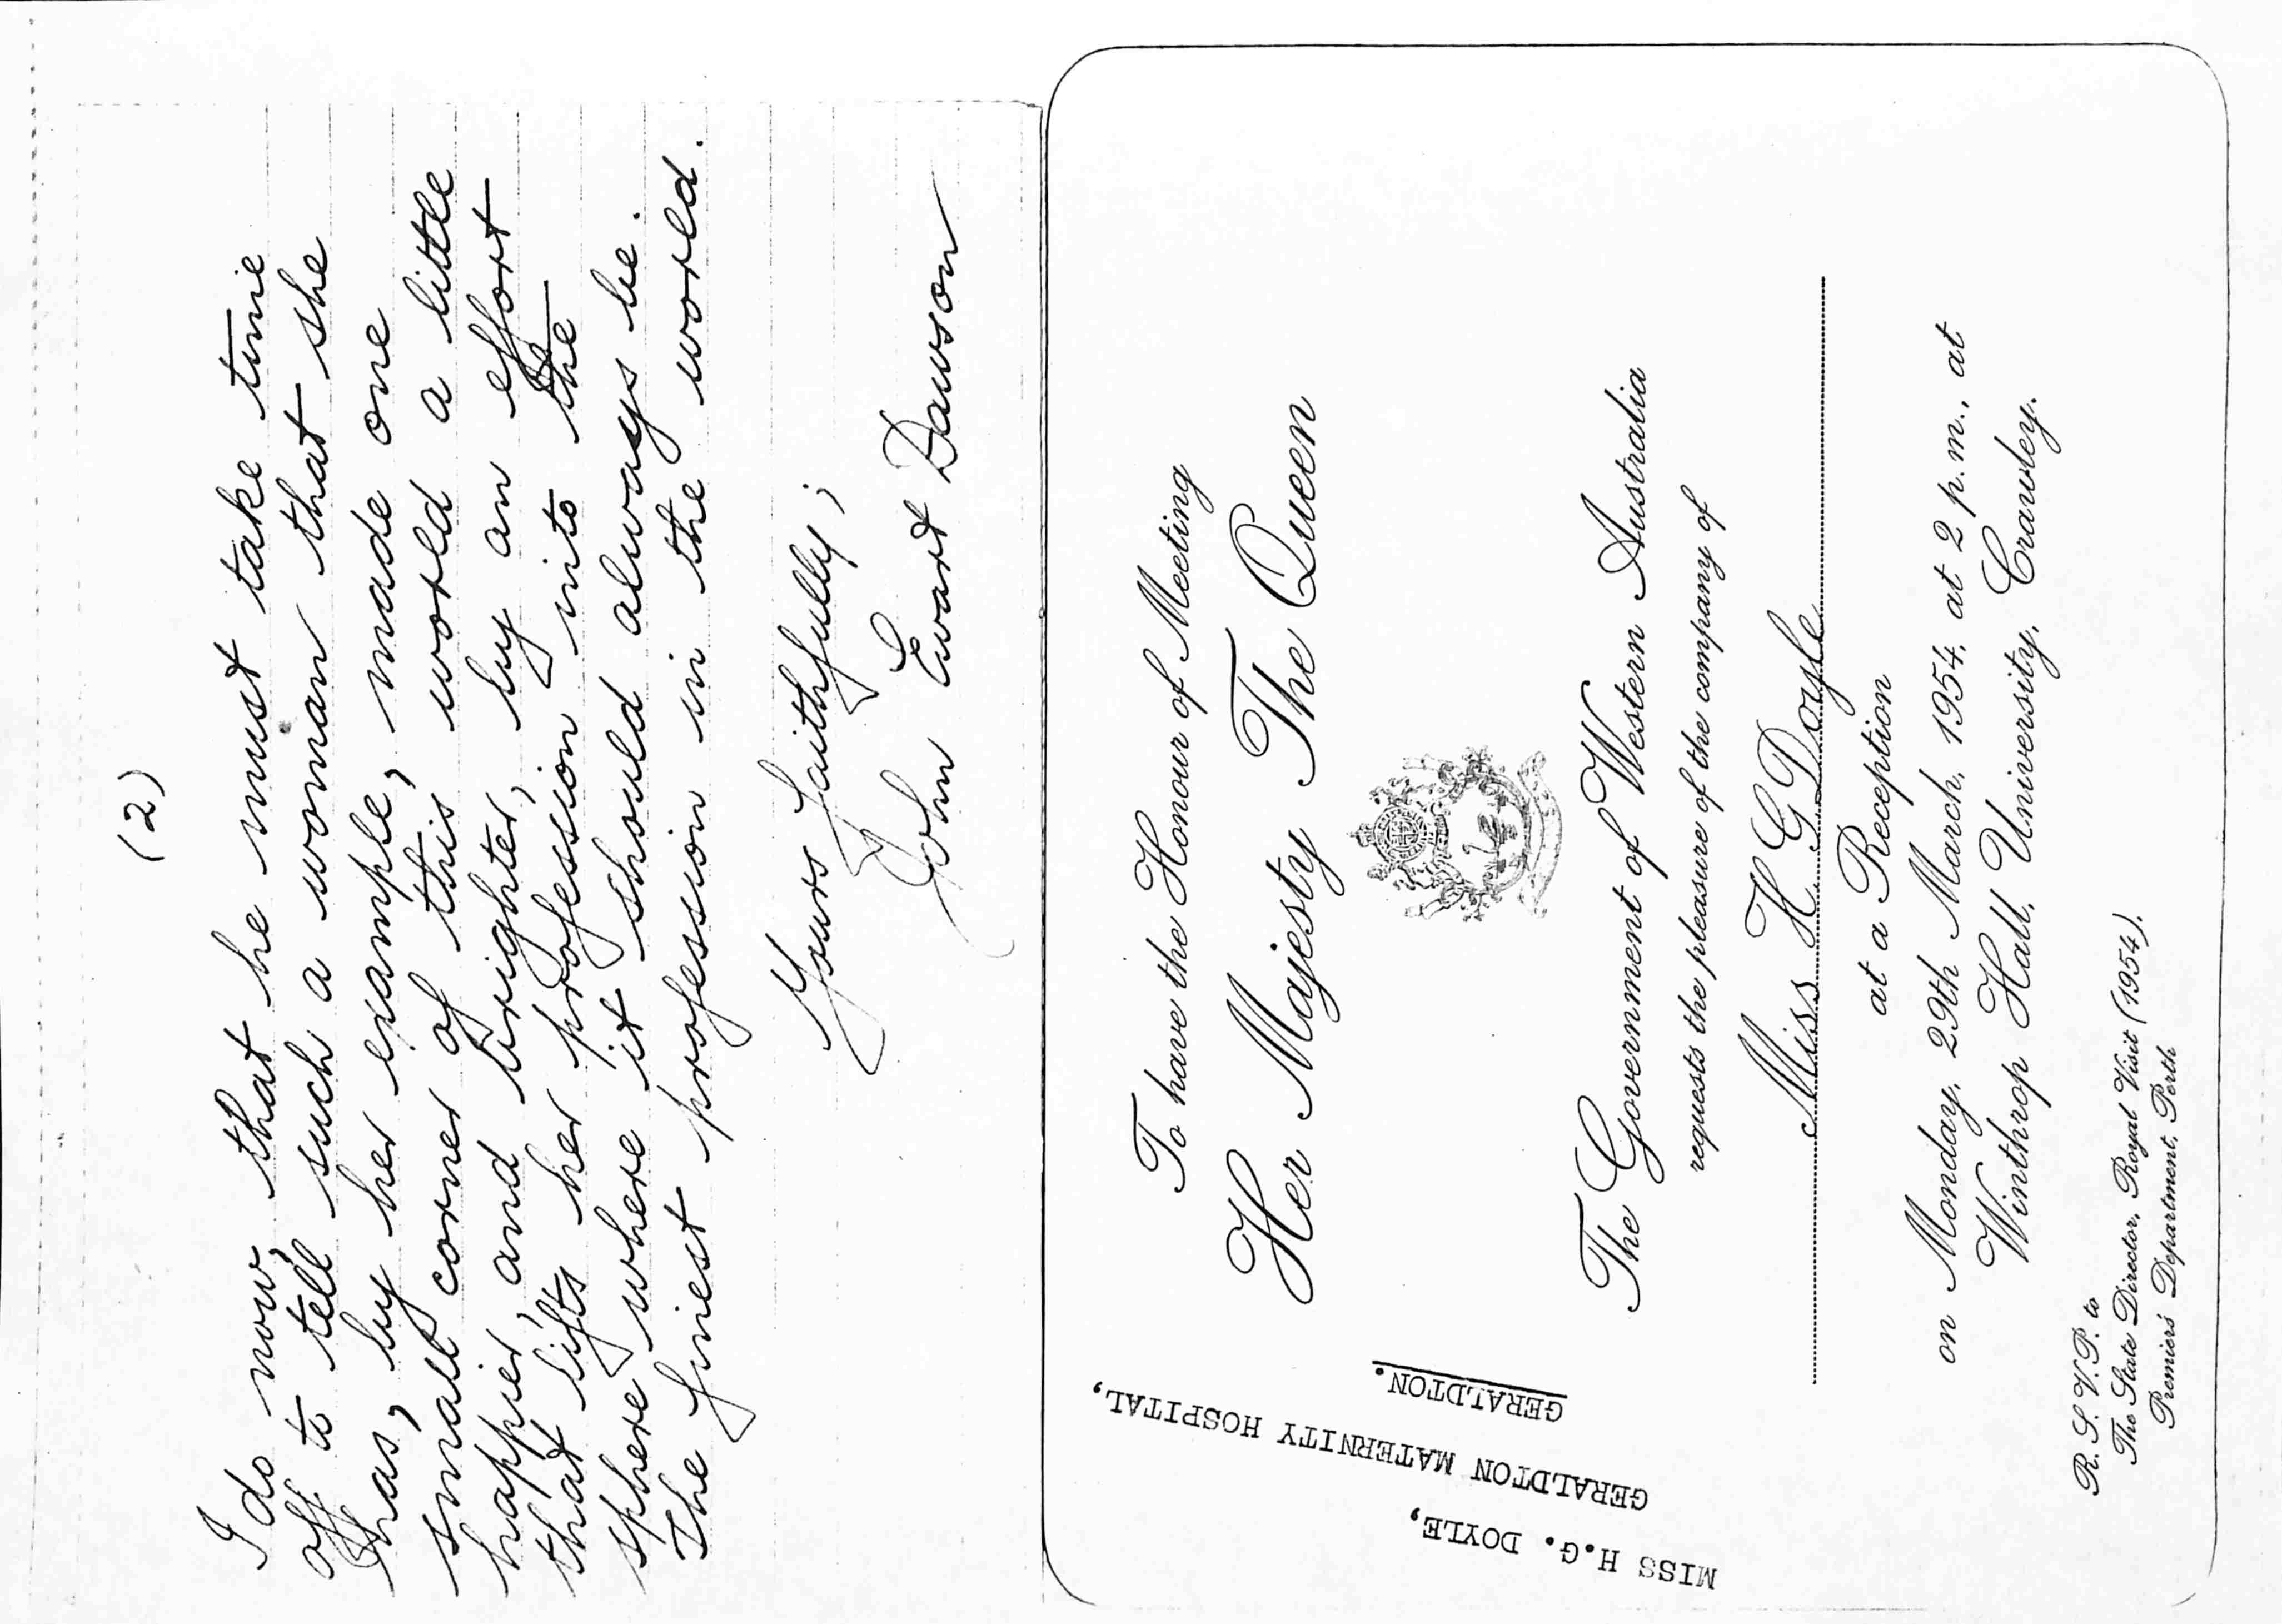 (2)
I do now, that he must take time
off to tell such a woman that she
has, by her example, made one
small corner of this world a little
happier, and brighter, by an effort
that lifts her profession into the
sphere where it should always be.
The finest profession in the world.
Yours faithfully;
John Ewart Dawson
To have the Honour of Meeting
Her Majesty The Queen
The Government of Western Australia
requests the pleasure of the company of
Miss H G Doyle
at a Reception
on Monday, 29th March, 1954, at 2 p.m., at
Winthrop Hall, University, Crawley.
R.S.V.P. to
The State Director, Royal Visit (1954),
Premier's Department, Perth
MISS H.G. DOYLE,
GERALDTON MATERNITY HOSPITAL,
GERALDTON.